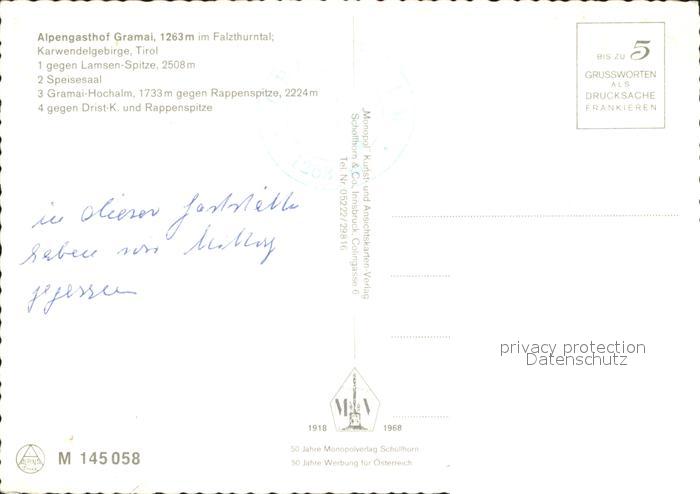 Alpengasthof Gramai, 1263 m im Falzthurntal;
Karwendelgebirge, Tirol
1 gegen Lamsen-Spitze, 2508 m
2 Speisesaal
3 Gramai-Hochalm, 1733 m gegen Rappenspitze, 2224 m
4 gegen Drist-K. und Rappenspitze
BIS ZU 5
GRUSSWORTEN
ALS
DRUCKSACHE
FRANKIEREN
„Monopol" Kunst- und Ansichtskarten-Verlag
Schöllhorn & Co., Innsbruck, Colingasse 6
Tel. Nr. 05222/29816
in dieser Gaststätte
haben wir Mittag
gegessen
privacy protection
Datenschutz
M V
1918 1968
50 Jahre Monopolverlag Schöllhorn
50 Jahre Werbung für Österreich
M 145 058